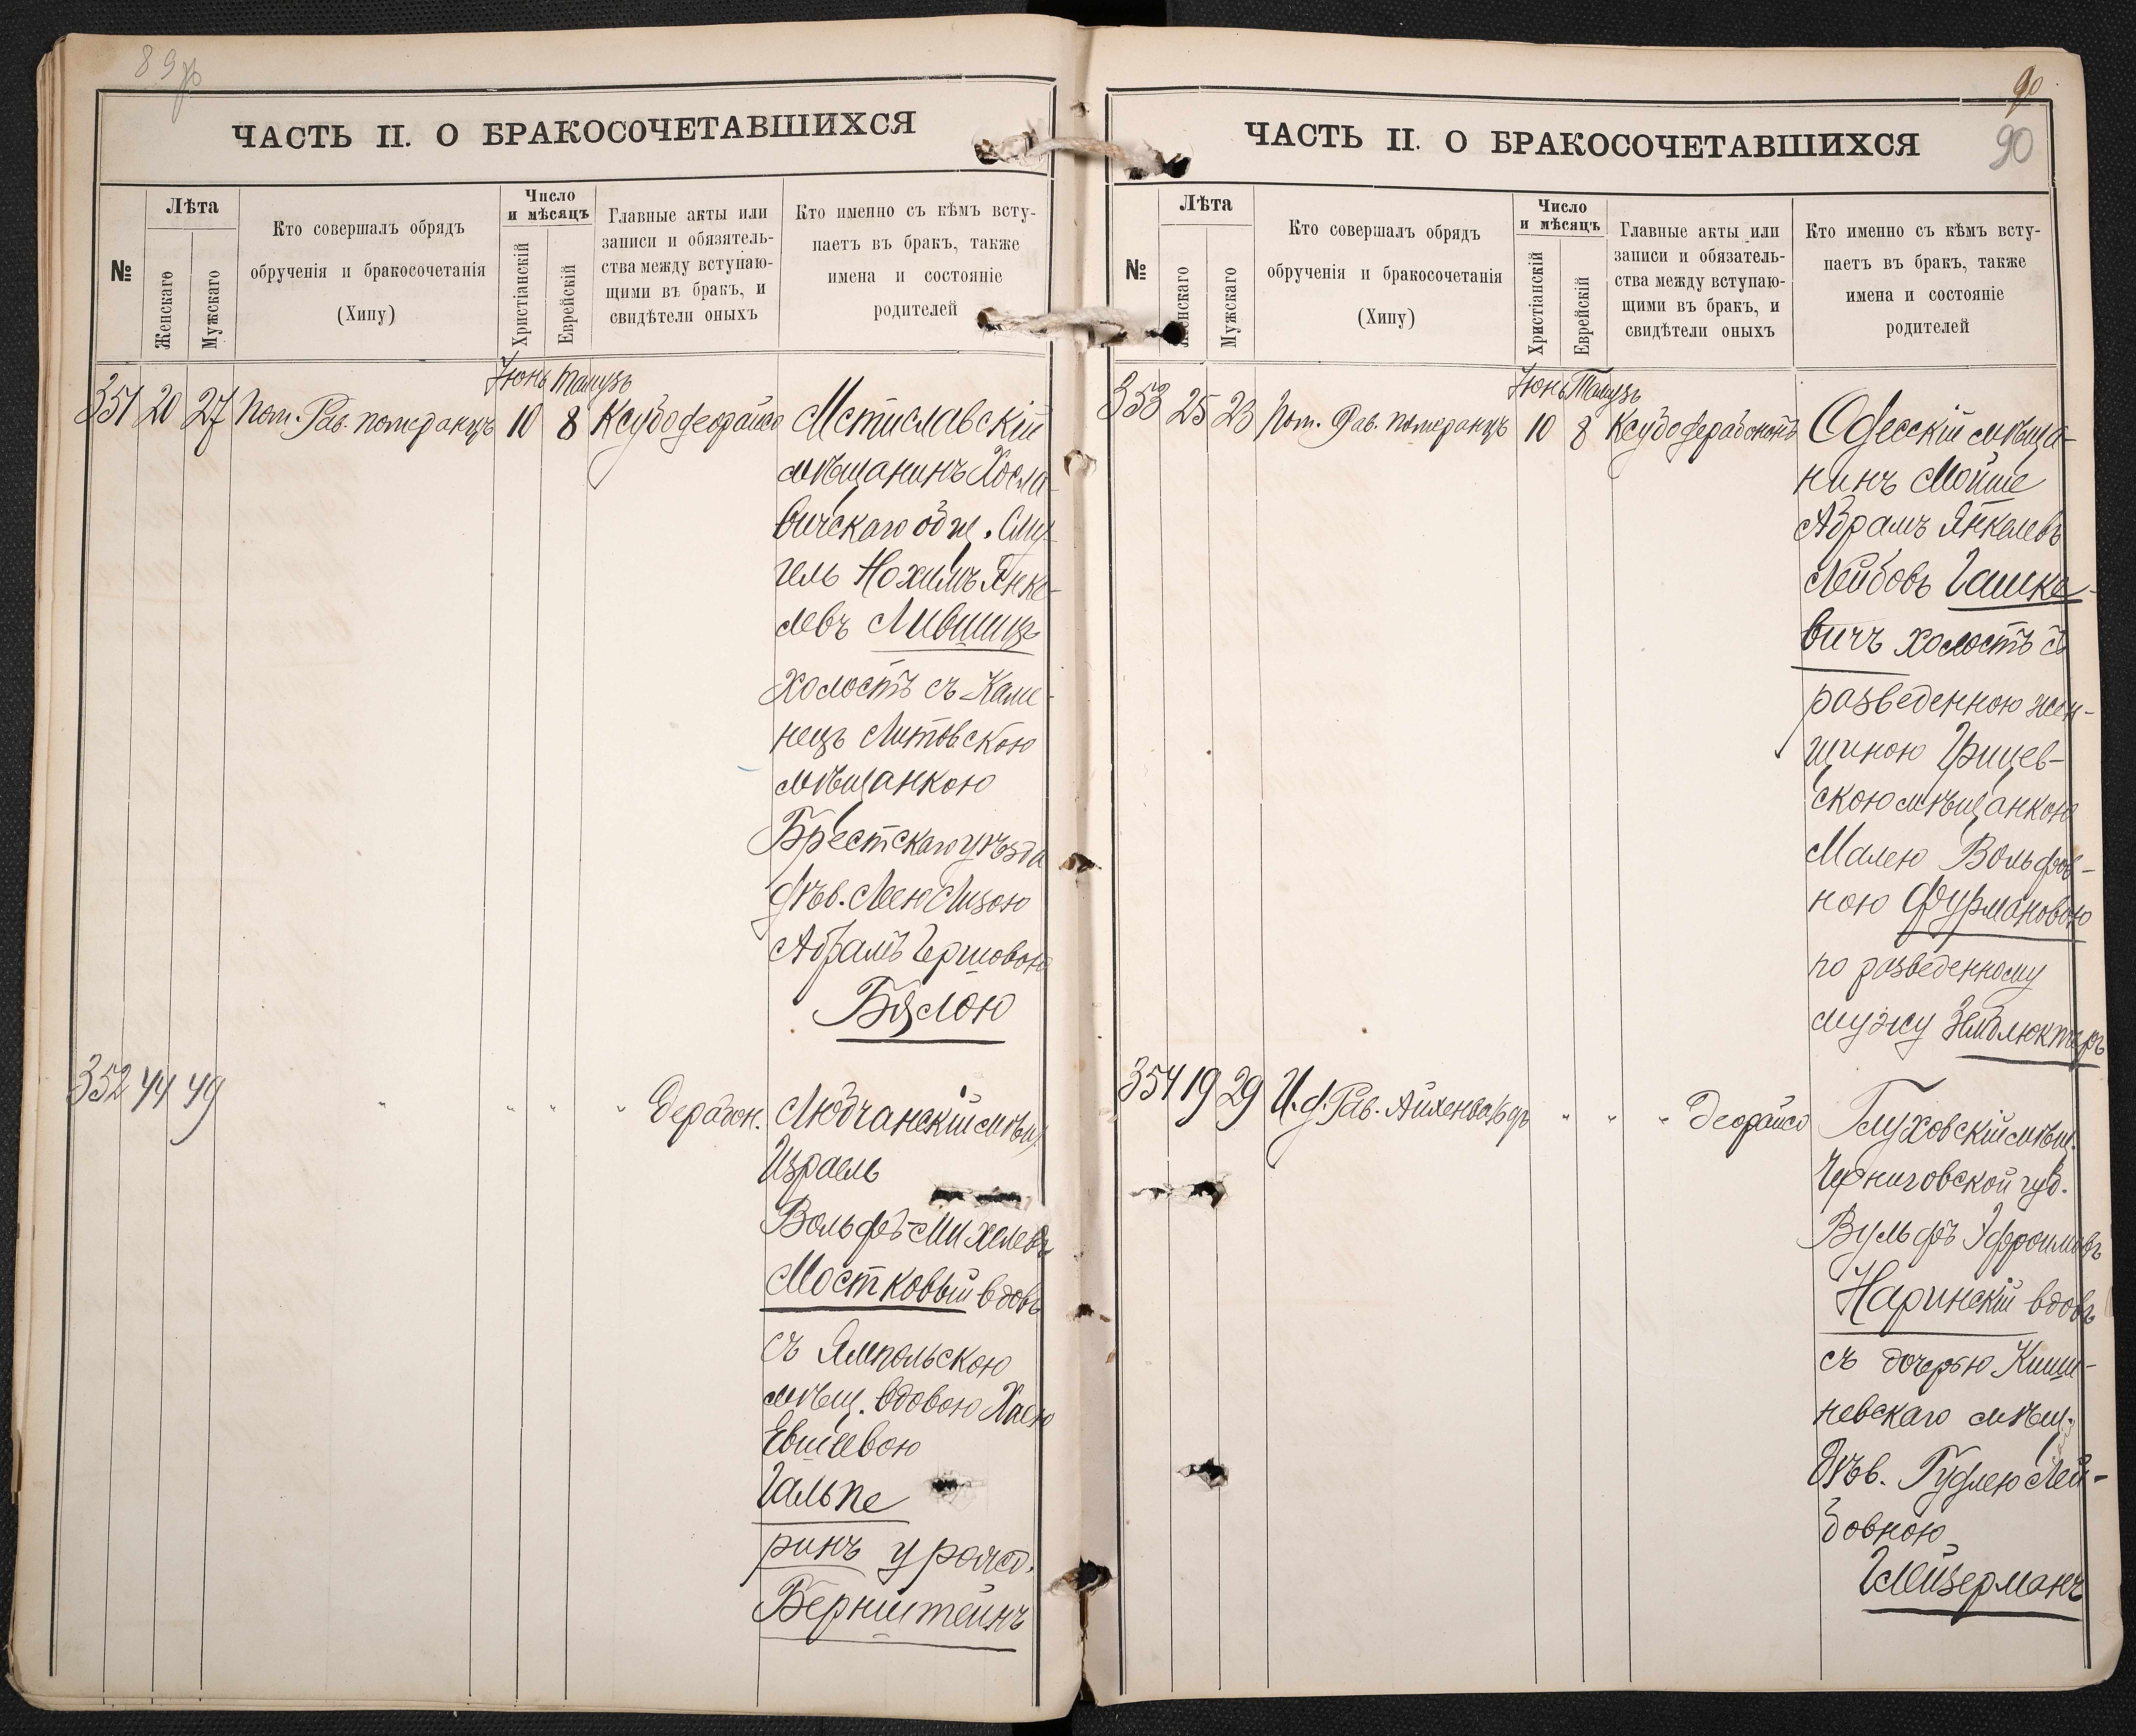 89
ЧАСТЬ II. О БРАКОСОЧЕТАВШИХСЯ
№
Лѣта
Женскаго
Мужскаго
Кто совершалъ обрядъ
обрученія и бракосочетанія
(Хипу)
Число
и мѣсяцъ
Христіанскій
Еврейскій
Главные акты или
записи и обязятель-
ства между вступаю-
щими въ бракъ, и
свидѣтели оныхъ
Кто именно съ кѣмъ всту-
паетъ въ бракъ, также
имена и состояніе
родителей
Іюнь Тамузъ
351 20 27 Пом. Рав. Померанцъ 10 8 Ксубо деорайсо Мстиславскій
мѣщанинъ Хосла-
вичскаго общ. Сму-
ель Нохимъ Янке-
левъ Лившицъ
холостъ съ Каме-
нецъ Литовскою
мѣщанкою
Брестскаго уѣзда
дѣв. Леею Лизою
Абрамъ Гершовою
Бялою
352 44 49 " " " " дерабон. Любчанскій мѣщ.
Израель
Вольфъ-Михелевъ
Мостковый вдовъ
съ Ямпольскою
мѣщ. вдовою Хаею
Евшіевою
Гальпе
ринъ урожд.
Бернштейнъ
90
90
ЧАСТЬ II. О БРАКОСОЧЕТАВШИХСЯ
№
Лѣта
Женскаго
Мужскаго
Кто совершалъ обрядъ
обрученія и бракосочетанія
(Хипу)
Число
и мѣсяцъ
Христіанскій
Еврейскій
Главные акты или
записи и обязатель-
ства между вступаю-
щими въ бракъ, и
свидѣтели оныхъ
Кто именно съ кѣмъ всту-
паетъ въ бракъ, также
имена и состояніе
родителей
Іюнь Тамузъ
353 25 23 Пом. Рав. Померанцъ 10 8 Ксубо дерабононъ Одесскій мѣща-
нинъ Мойше
Абрамъ Янкелевъ
Лейбовъ Гашке-
вичъ холостъ съ
разведенною жен-
щиною Грицев-
скою мѣщанкою
Малею Вольфов-
ною Фурмановою
по разведенному
мужу
354 19 29 И. д. Рав. Айхенвальдъ " " " деорайсо Глуховскій мѣщ.
Черниговской губ.
Вульфъ Эфроимовъ
Наринскій вдовъ
съ дочерью Киши-
невскаго мѣщ.
дѣв. Гудлею Лей-
бовною
Глейзерманъ